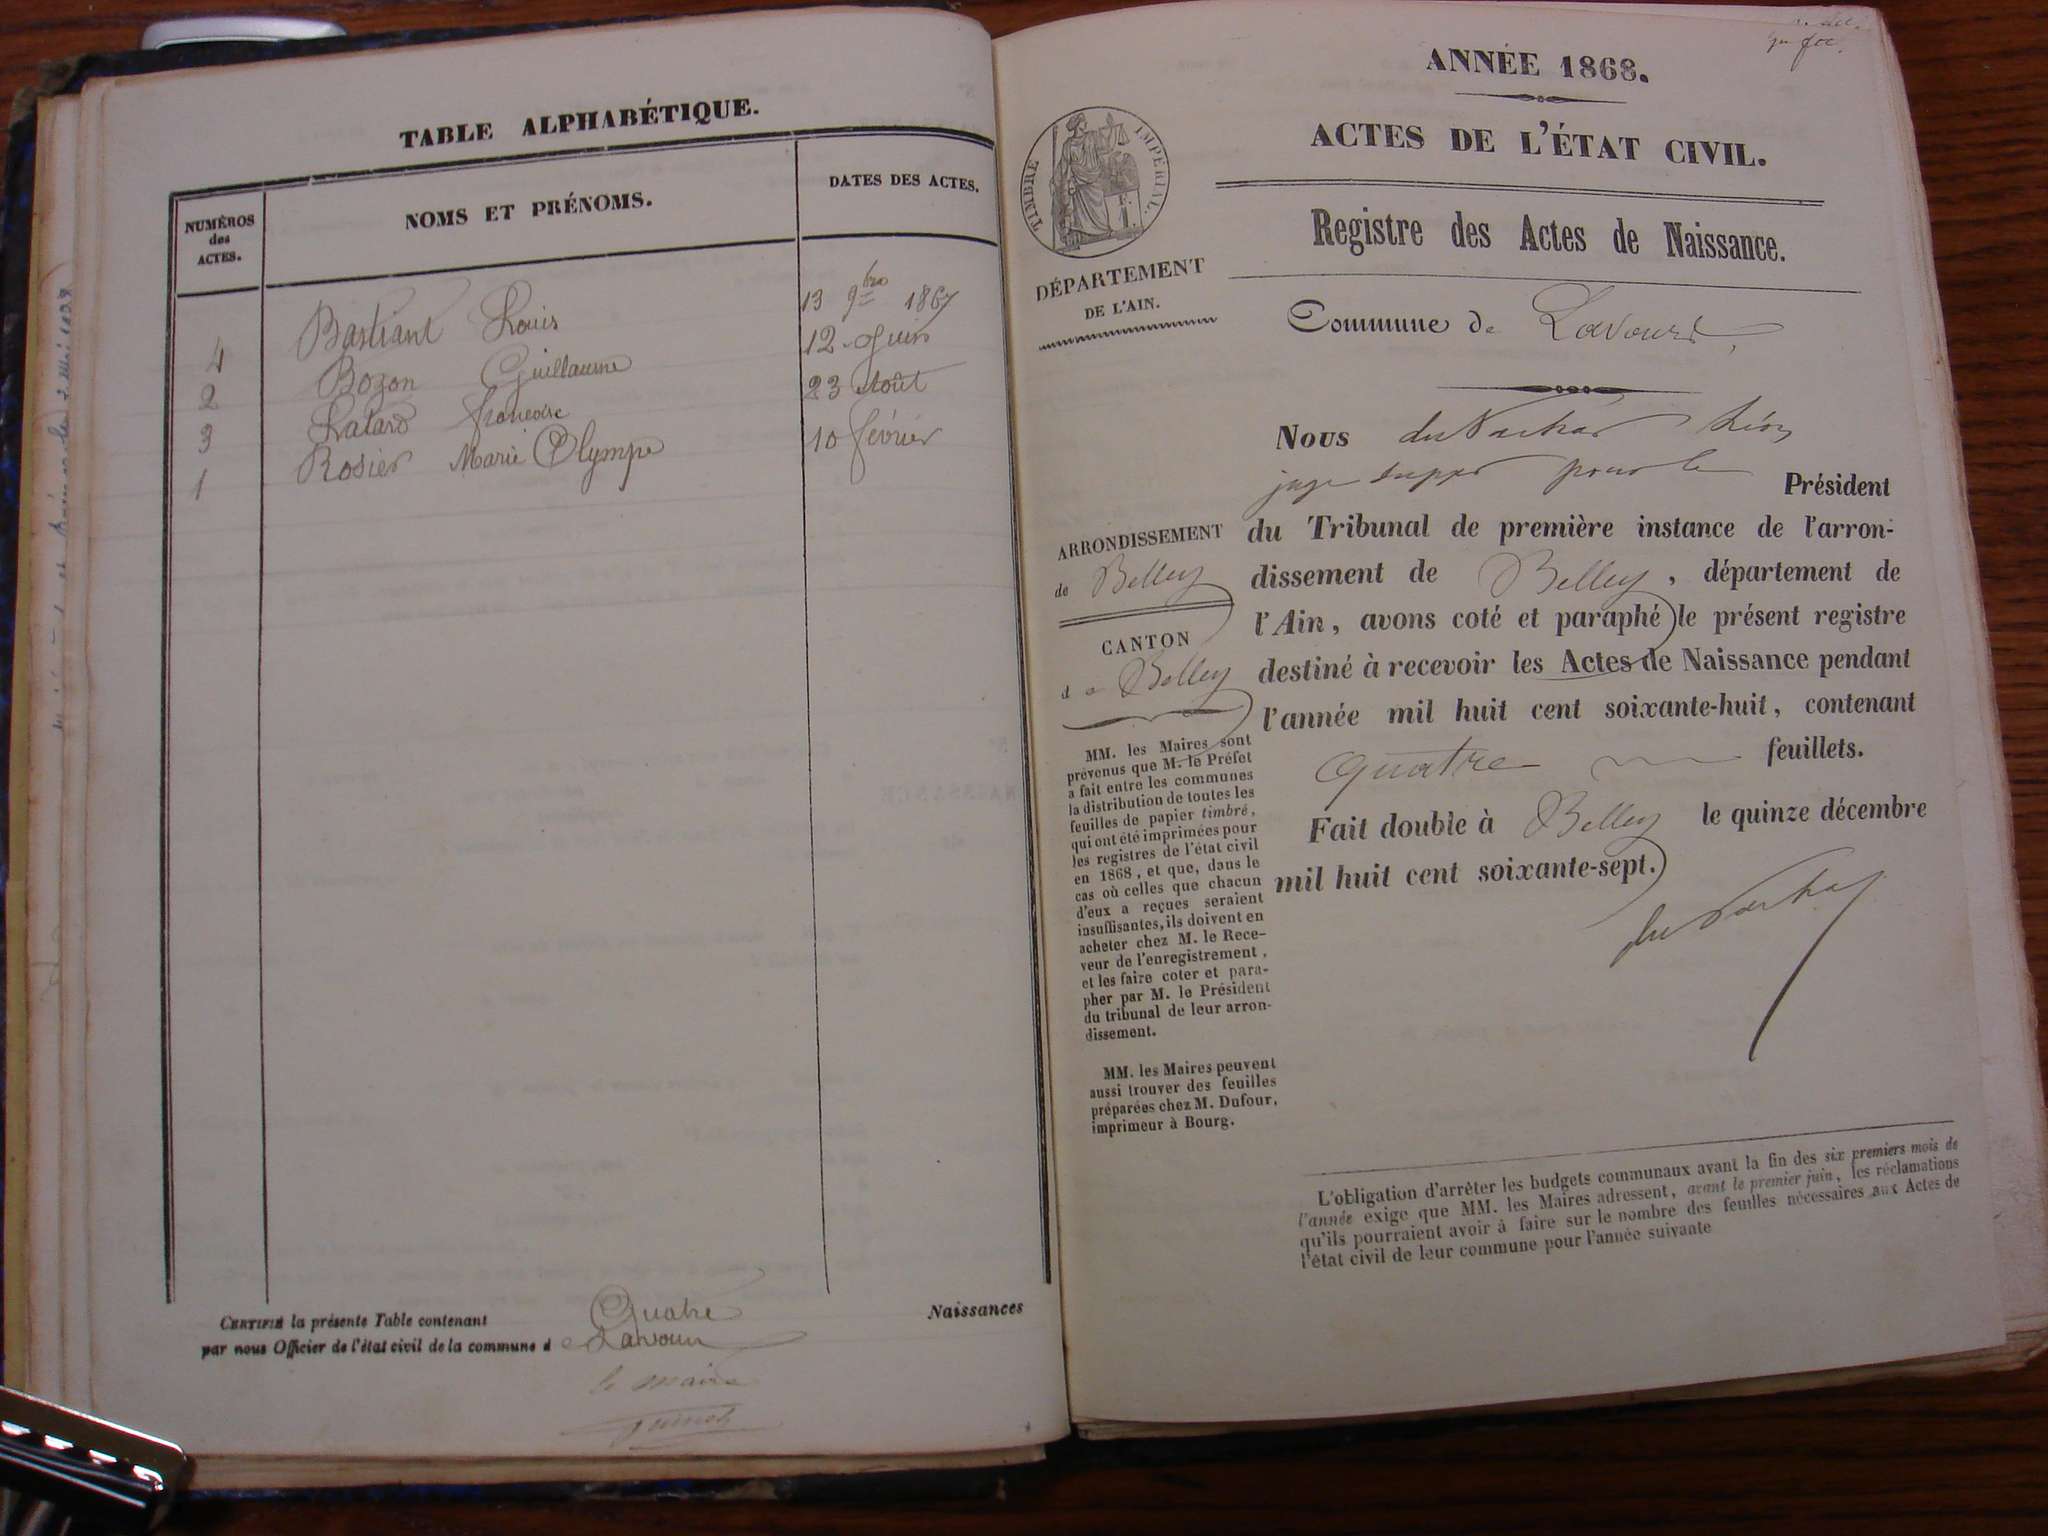 TABLE ALPHABÉTIQUE.
NUMÉROS
des
ACTES.
NOMS ET PRÉNOMS.
DATES DES ACTES.
4 Louis 13 9bre 1867
2 Bozon Guillaume 12 Juin
3 Françoise 23 Août
1 Rosier Marie Olympe 10 février
CERTIFIÉ la présente Table contenant Quatre Naissances
par nous Officier de l'état civil de la commune d e Lavours
le maire
ANNÉE 1868.
ACTES DE L'ÉTAT CIVIL.
TIMBRE IMPÉRIAL.
Registre des Actes de Naissance.
DÉPARTEMENT
DE L'AIN.
Commune de Lavours,
ARRONDISSEMENT
de Belley
CANTON
d e Belley
MM. les Maires sont
prévenus que M. le Préfet
a fait entre les communes
la distribution de toutes les
feuilles de papier timbré,
qui ont été imprimées pour
les registres de l'état civil
en 1868, et que, dans le
cas où celles que chacun
d'eux a reçues seraient
insuffisantes, ils doivent en
acheter chez M. le Rece-
veur de l'enregistrement,
et les faire coter et para-
pher par M. le Président
du tribunal de leur arron-
dissement.
MM. les Maires peuvent
aussi trouver des feuilles
préparées chez M. Dufour,
imprimeur à Bourg.
Nous
juge pour le Président
du Tribunal de première instance de l'arron-
dissement de Belley, département de
l'Ain, avons coté et paraphé le présent registre
destiné à recevoir les Actes de Naissance pendant
l'année mil huit cent soixante-huit, contenant
quatre feuillets.
Fait double à Belley le quinze décembre
mil huit cent soixante-sept.
L'obligation d'arrêter les budgets communaux avant la fin des six premiers mois de
l'année exige que MM. les Maires adressent, avant le premier juin, les réclamations
qu'ils pourraient avoir à faire sur le nombre des feuilles nécessaires aux Actes de
l'état civil de leur commune pour l'année suivante